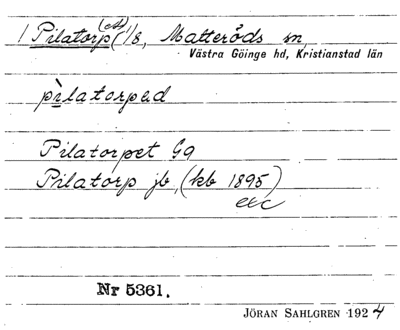 1 Pilatorp(et) 1/8, Matteröds sn,
Västra Göinge hd, Kristianstad län
pìlatorpad
Pilatorpet Gg
Pilatorp jb, (kb 1895)
etc
Nr 5361.
JÖRAN SAHLGREN 1924